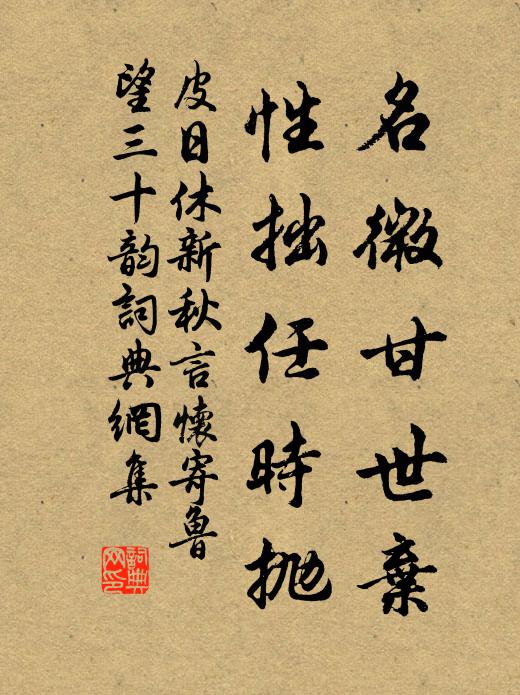 名微甘世棄
性拙任時抛
皮日休新秋言懷寄魯
望三十韵詞典網集
詞典
网印